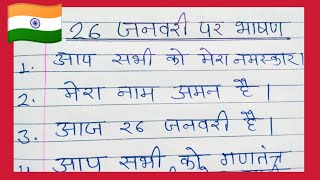 26 जनवरी पर भाषण
1. आप सभी को मेरा नमस्कार।
2. मेरा नाम अमन है।
3. आज २६ जनवरी है।
आप सभी को गणतंत्र